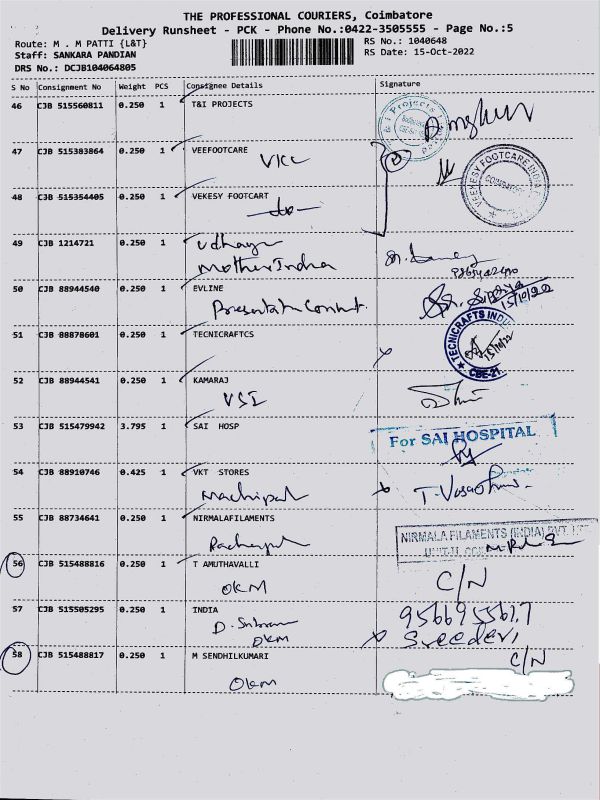 THE PROFESSIONAL COURIERS, Coimbatore
Delivery Runsheet - PCK - Phone No.:0422-3505555 - Page No.:5
Route: M . M PATTI {L&T}
RS No.: 1040648
Staff: SANKARA PANDIAN
RS Date: 15-Oct-2022
DRS No.: DCJB104064805
S No Consignment No Weight PCS Consignee Details Signature
46 CJB 515560811 0.250 1 T&I PROJECTS
47 CJB 515383864 0.250 1 VEEFOOTCARE
VKC
VEEKESY FOOTCARE INDIA
COIMBATORE
48 CJB 515354405 0.250 1 VEKESY FOOTCART
-do-
49 CJB 1214721 0.250 1 Udhaya
Mother India
50 CJB 88944540 0.250 1 EVLINE
15/10/22
51 CJB 88878601 0.250 1 TECNICRAFTCS
TECNICRAFTS INDIA
15/10/22
CBE-21.
52 CJB 88944541 0.250 1 KAMARAJ
VSI
53 CJB 515479942 3.795 1 SAI HOSP
For SAI HOSPITAL
54 CJB 88910746 0.425 1 VKT STORES
55 CJB 88734641 0.250 1 NIRMALAFILAMENTS
NIRMALA FILAMENTS (INDIA) PVT. LTD
UNIT-II
56 CJB 515488816 0.250 1 T AMUTHAVALLI
OKM C/N
57 CJB 515505295 0.250 1 INDIA
OKM Sreedevi
58 CJB 515488817 0.250 1 M SENDHILKUMARI C/N
OKM